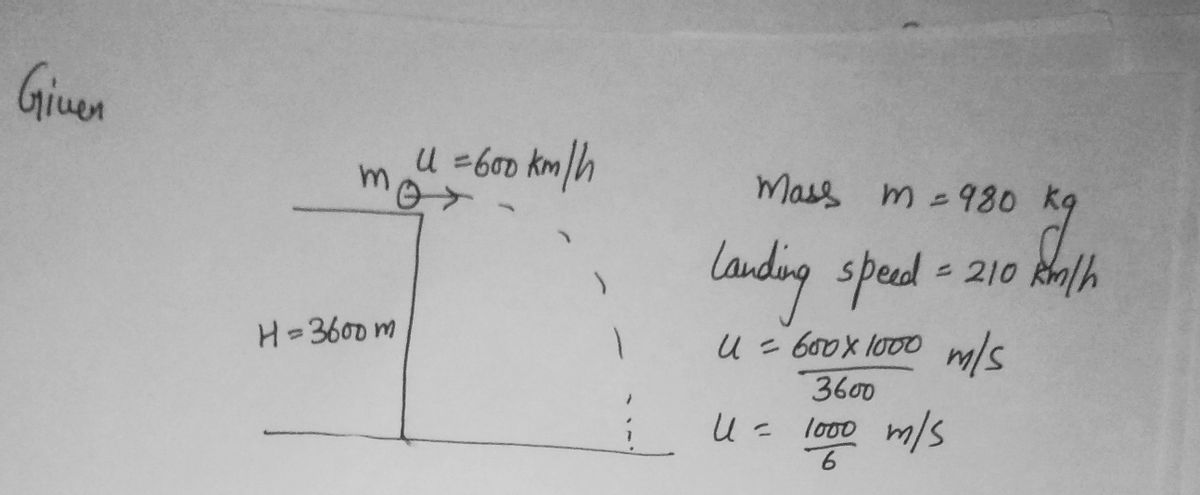 Given
m U = 600 km/h
Mass m = 980 kg
Landing speed = 210 km/h
H = 3600 m
U = 600 x 1000 / 3600 m/s
U = 1000 / 6 m/s